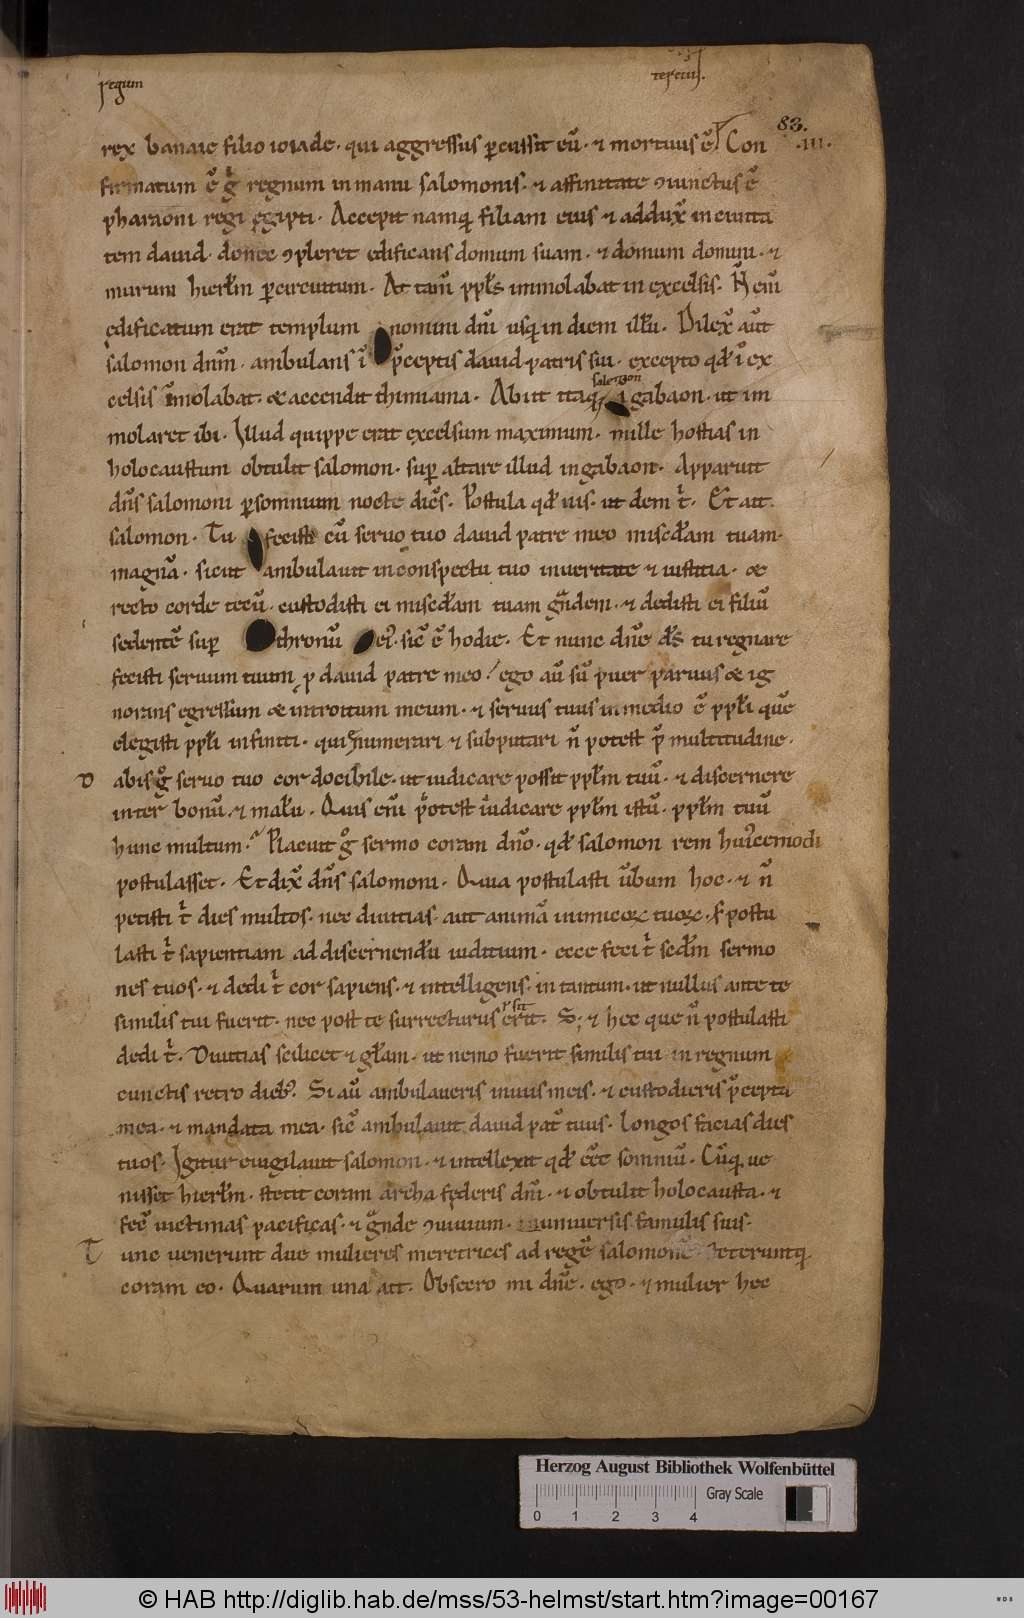 regum
terciuſ.
83.
rex banaie filio ioiade · qui aggreſſus ꝑcuſſit eū · ⁊ mortuus ē. Con .III.
firmatum ē gͥ regnum in manu ſalomonis · ⁊ affinitate ꝯiunctus ē
pharaoni regi ęgipti · Accepit namq; filiam eius ⁊ addux̄ in ciuita
tem dauid · donec ꝯpleret edificans domum ſuam · ⁊ domum domini · ⁊
murum hierl̄m ꝑcircuitum · At tam̄ ppl̄s immolabat in excelſis · N̄ eni̅
ędificatum erat templum nomini dn̄i uſq; in diem illū. Dilex̄ aūt
ſalomon dn̄m · ambulans ī p̄ceptis dauid patris ſui · excepto qd̄ ī ex
celſis īmolabat · & accendit thimiama · Abiit itaq; ſalomon ī gabaon · ut im
molaret ibi · Illud quippe erat excelſum maximum · mille hoſtias in
holocauſtum obtulit ſalomon · ſuꝑ altare illud in gabaon · Apparuit
dn̄s ſalomoni ꝑſomnium nocte dicēs · Poſtula qd̄ uis · ut dem tͥ. Et ait
ſalomon · Tu feciſti cū ſeruo tuo dauid patre meo miſcd̄iam tuam
magnā · ſicut ambulauit in conſpectu tuo in ueritate ⁊ iuſtitia · &
recto corde tecū · cuſtodiſti ei miſcd̄iam tuam gͣndem · ⁊ dediſti ei filiū
ſedentē ſuꝑ thronū ei᷒ · ſic̄ ē hodie · Et nunc dn̄e d̄s tu regnare
feciſti ſeruum tuum ꝓ dauid patre meo · ego aū ſū puer paruus & ig
norans egreſſum & introitum meum · ⁊ ſeruus tuus in medio ē ppl̄i quē
elegiſti ppl̄i infiniti · qui numerari ⁊ ſubputari n̄ poteſt p̄ multitudine ·
D abis gͦ ſeruo tuo cor docibile · ut iudicare poſſit ppl̄m tuū · ⁊ diſcernere
inter bonū · ⁊ malū · Quis eni̅ pͦteſt iudicare ppl̄m iſtū · ppl̄m tuū
hunc multum · Placuit gͦ ſermo coram dn̄o · qd̄ ſalomon rem hui᷒cemodi
poſtulaſſet · Et dix̄ dn̄s ſalomoni · Quia poſtulaſti ūbum hoc · ⁊ n̄
petiſti tͥ dies multos · nec diuitias · aut animā inimicoꝝ tuoꝝ · ſ; poſtu
laſti tͥ ſapientiam ad diſcernendū iuditium · ecce feci tͥ ſcd̄m ſermo
nes tuos · ⁊ dedi tͥ cor ſapiens · ⁊ intelligens · in tantum · ut nullus ante te
ſimilis tui fuerit · nec poſt te ſurrecturus ſit erit · S; ⁊ hec que n̄ poſtulaſti
dedi tͥ. Diuitias ſcilicet ⁊ gl̄am · ut nemo fuerit ſimilis tui in regnum
cunctis retro dieb᷒. Si aū ambulaueris in uiis meis · ⁊ cuſtodieris p̄cepta
mea · ⁊ mandata mea · ſic̄ ambulauit dauid pat̄ tuus · longos faciā dies
tuos · Igitur euigilauit ſalomon · ⁊ intellexit qd̄ eēt ſomniū · Cūq; ue
niſſet hierl̄m · ſtetit coram archa fęderis dn̄i · ⁊ obtulit holocauſta · ⁊
fec̄ uictimas pacificas · ⁊ gͣnde ꝯuiuium · uniuerſis famulis ſuis ·
T unc uenerunt due mulieres meretrices ad regē ſalomonē · ſteteruntq;
coram eo · Quarum una ait · Obſecro mi dn̄e · ego · ⁊ mulier hec
Herzog August Bibliothek Wolfenbüttel
Gray Scale
0 1 2 3 4
© HAB http://diglib.hab.de/mss/53-helmst/start.htm?image=00167